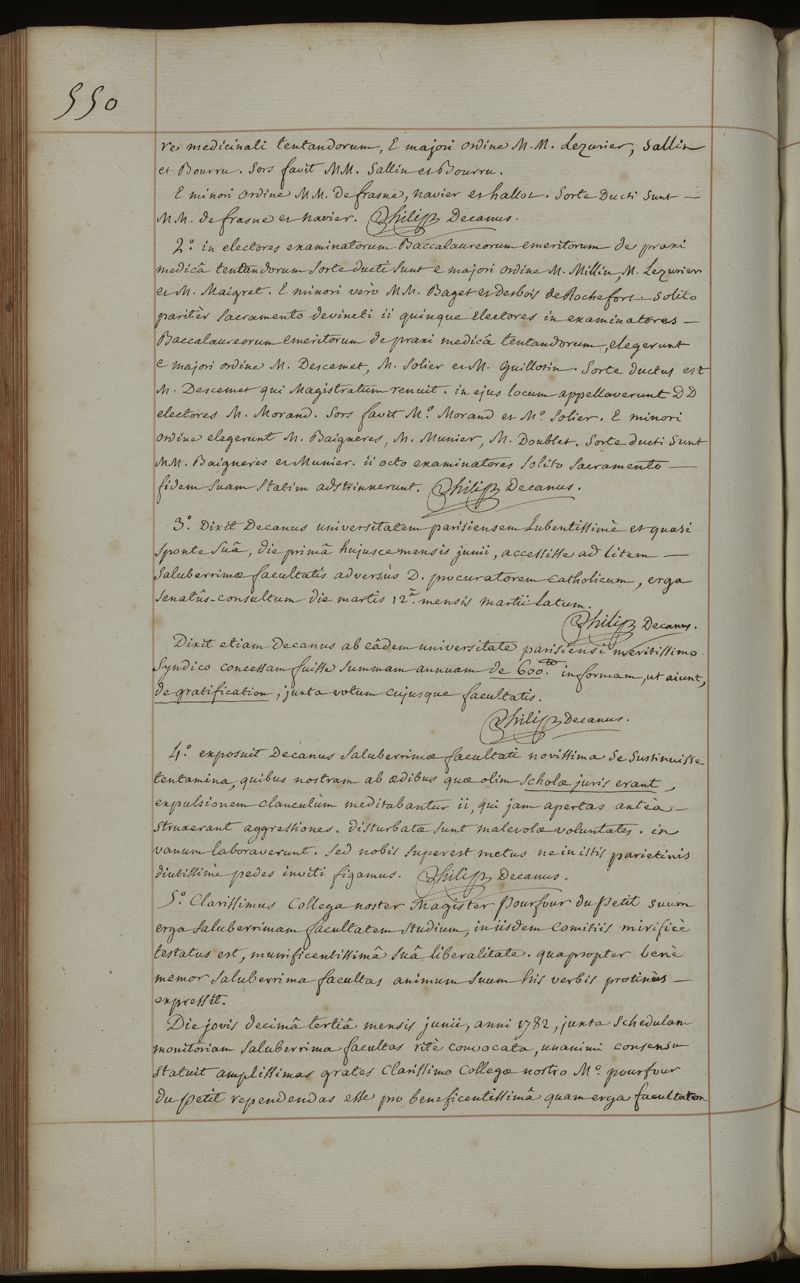 550
re medicinali tentandorum, E majori ordine M. M. Lezurier, Sallin
et Bourru. Sors favit MM. Sallin et Bourru.
E minori ordine MM. De frasne, navier et hallot. Sorte Ducti Sunt —
MM. de frasne et navier. Philip Decanus.
2.° in electores examinatorum Baccalaureorum emeritorum de praxi
medicâ tentandorum Sorte ducti Sunt e majori ordine M. Millin, M. Lezurier
et M. Maigret. E minori verò MM. Baget et desbois de Rochefort. Solito
paritèr Sacramento devincti ii quinque electores in examinatores —
Baccalaureorum emeritorum de praxi medicâ tentandorum, elegerunt
e majori ordine M. Descemet, M. Solier et M. Guillotin. Sorte ductus est
M. Descemet qui Magistratum renuit. in ejus locum appellaverunt DD
electores M. Morand. Sors favit M.° Morand et M.° Solier. E minori
ordine elegerunt M. Baigneres, M. Munier, M. Doublet. Sorte ducti Sunt
MM. Baigneres et Munier. ii octo examinatores Solito Sacramento —
fidem Suam Statim adstrinxerunt. Philip Decanus.
3.° Dixit Decanus universitatem parisiensem Lubentissimè et quasi
Sponte Suâ, die primâ hujusce mensis junii, accessisse ad litem —
Saluberrimæ facultatis adversùs D. procuratorem Catholicum, erga
Senatûs-consultum die martis 12.ª mensis martii latum.
Philip Decanus.
Dixit etiam Decanus ab eâdem universitate parisiensi meritissimo
Syndico concessam fuisse Summam annuam de 600.tt in formam, ut aiunt,
de gratification, juxta votum cujusque facultatis.
Philip Decanus.
4.° exposuit Decanus Saluberrimæ facultati novissima Se Sustinuisse
tentamina, quibus nostram ab ædibus quæ olim Scholæ juris erant,
expulsionem clanculùm meditabantur ii, qui jam apertas anteà —
Struxerant aggressiones. disturbatæ sunt malevolæ voluntates. in
vanum laboraverunt. Sed nobis Superest metus ne in istis parietinis
diutissimè pedes inviti figamus. Philip Decanus.
5.° Clarissimus Collega noster Magister Pourfour du Petit Suum
erga Saluberrimam facultatem Studium, in iisdem Comitiis mirificè
testatus est, munificentissimâ Suâ liberalitate. quapropter benè
memor Saluberrima facultas animum Suum his verbis protinùs —
expressit.
Die jovis decimâ tertiâ mensis junii, anni 1782, juxta Schedulam
monitoriam Saluberrima facultas ritè convocata, unanimi consensu
Statuit amplissimas grates Clarissimo Collegæ nostro M.° pourfour
du Petit rependendas esse pro beneficentissimâ quam erga facultatem